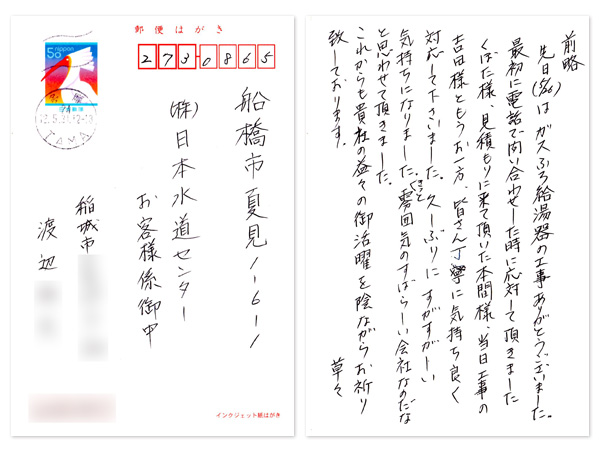 郵便はがき
50
nippon
TAMA
2730865
船橋市夏見1-6-1
(株)日本水道センター
お客様係御中
稲城市
渡辺
インクジェット紙はがき
前略
先日(5/26)はガスふろ給湯器の工事ありがとうございました。
最初に電話で問い合わせした時に応対して頂きました
くぼた様、見積もりに来て頂いた本間様、当日工事の
吉田様ともうお一方、皆さん丁寧に気持ち良く
対応して下さいました。久しぶりにすがすがしい
気持ちになりました。きっと雰囲気のすばらしい会社なのだな
と思わせて頂きました。
これからも貴社の益々の御活躍を陰ながらお祈り
致しております。
草々